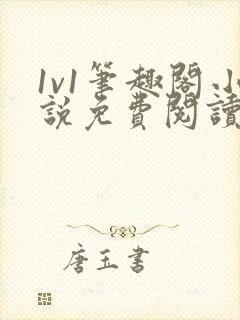 1v1筆趣閣.小
說免費閱讀
唐玉書